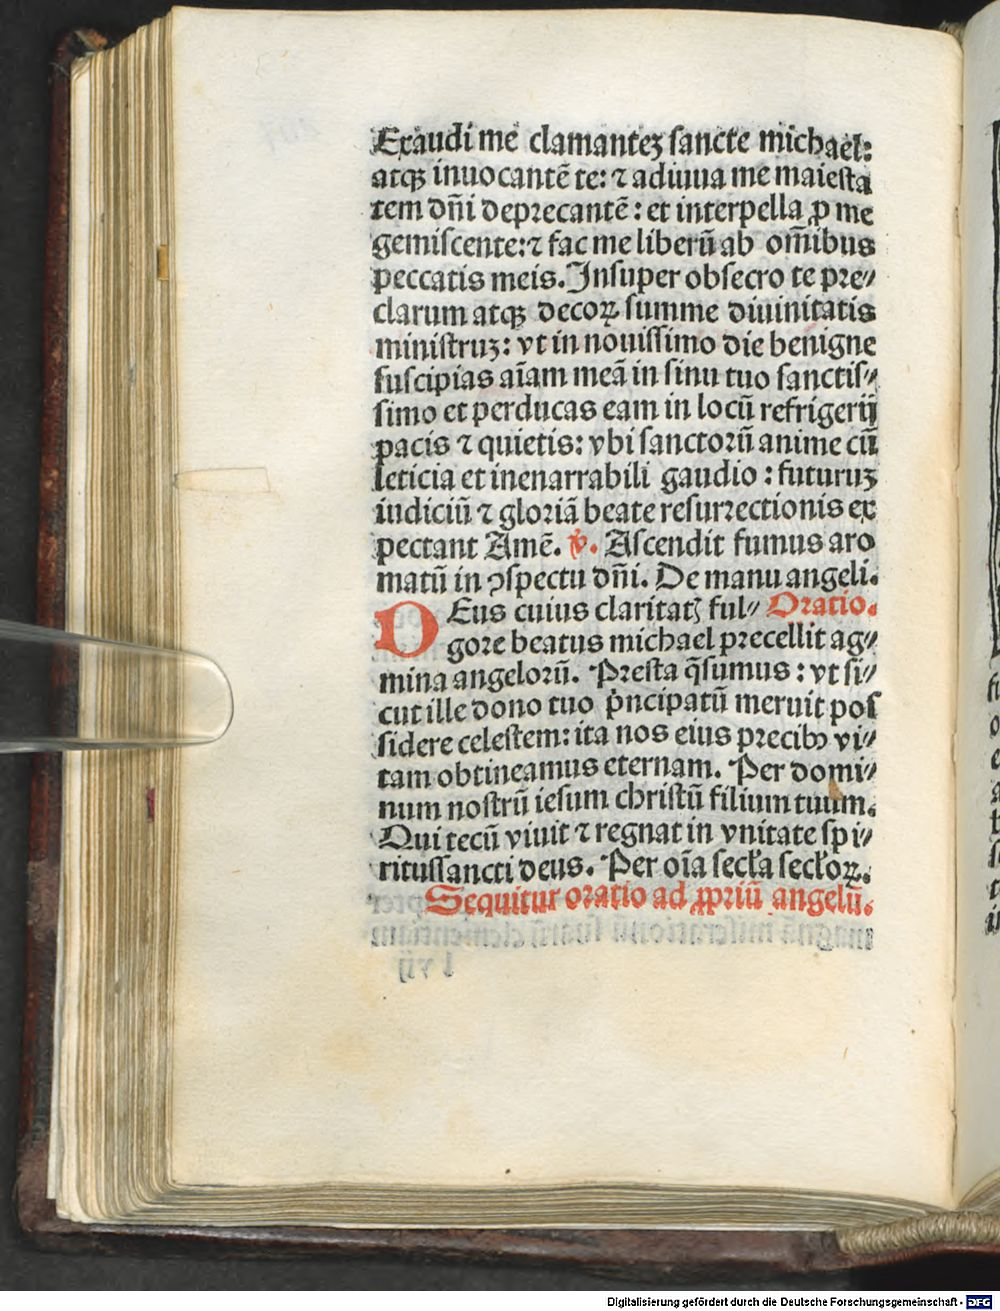 Exaudi me clamanteꝫ sancte michael:
atqꝫ inuocantē te: ⁊ adiuua me maiesta
tem dn̄i deprecantē: et interpella ꝓ me
gemiscente: ⁊ fac me liberū ab om̄ibus
peccatis meis. Insuper obsecro te pre⸗
clarum atqꝫ decoꝝ summe diuinitatis
ministruꝫ: vt in nouissimo die benigne
suscipias aīam meā in sinu tuo sanctis⸗
simo et perducas eam in locū refrigerij
pacis ⁊ quietis: vbi sanctorū anime cū
leticia et inenarrabili gaudio: futuruꝫ
iudiciū ⁊ gloriā beate resurrectionis ex
pectant Amē. ℣. Ascendit fumus aro
matū in ꝯspectu dn̄i. De manu angeli.
DEus cuius claritatꝭ ful⸗ Oratio.
gore beatus michael precellit ag⸗
mina angelorū. Presta q̄sumus: vt si⸗
cut ille dono tuo pͥncipatū meruit pos
sidere celestem: ita nos eius precibꝰ vi⸗
tam obtineamus eternam. Per domi⸗
num nostrū iesum christū filium tuum.
Qui tecū viuit ⁊ regnat in vnitate spi⸗
ritussancti deus. Per oīa secƚa secƚoꝝ.
Sequitur oratio ad ꝓpriū angelū.
Digitalisierung gefördert durch die Deutsche Forschungsgemeinschaft - DFG